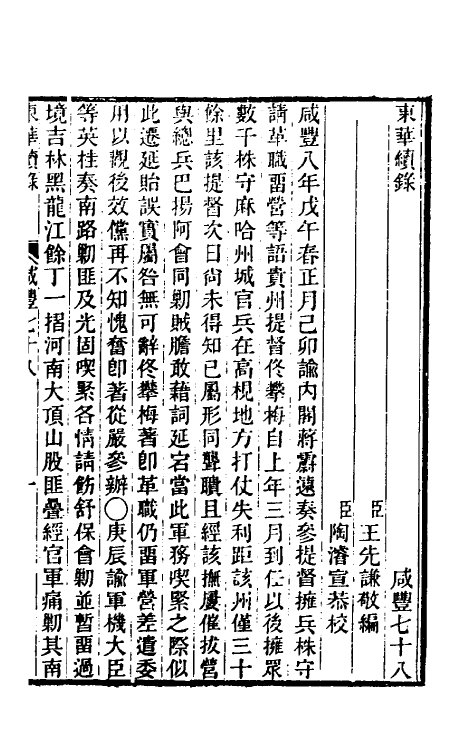 東華續錄　咸豐七十八
臣王先謙敬編
臣陶濬宣恭校
咸豐八年戊午春正月己卯諭內閣蔣霨遠奏參提督擁兵株守
請革職畱營等語貴州提督佟攀梅自上年三月到任以後擁眾
數千株守麻哈州城官兵在高梘地方打仗失利距該州僅三十
餘里該提督次日尚未得知已屬形同聾聵且經該撫屢催拔營
與總兵巴揚阿會同剿賊膽敢藉詞延宕當此軍務喫緊之際似
此遷延貽誤實屬咎無可辭佟攀梅著卽革職仍畱軍營差遣委
用以觀後效儻再不知愧奮卽著從嚴參辦○庚辰諭軍機大臣
等英桂奏南路剿匪及光固喫緊各情請飭舒保會剿並暫畱過
境吉林黑龍江餘丁一摺河南大頂山股匪疊經官軍痛剿其南
東華續錄　咸豐七十八　一